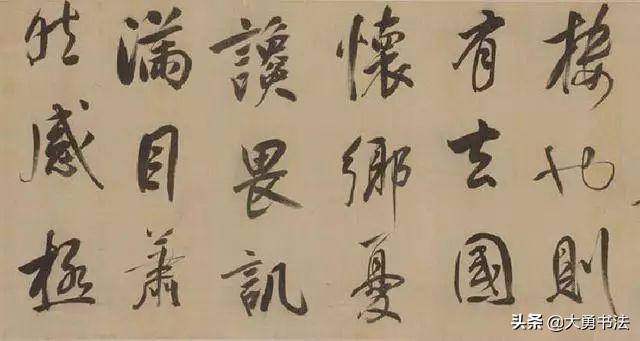 樓也則
有去國
懷鄉憂
讒畏譏
滿目蕭
然感極
头条 @大勇书法